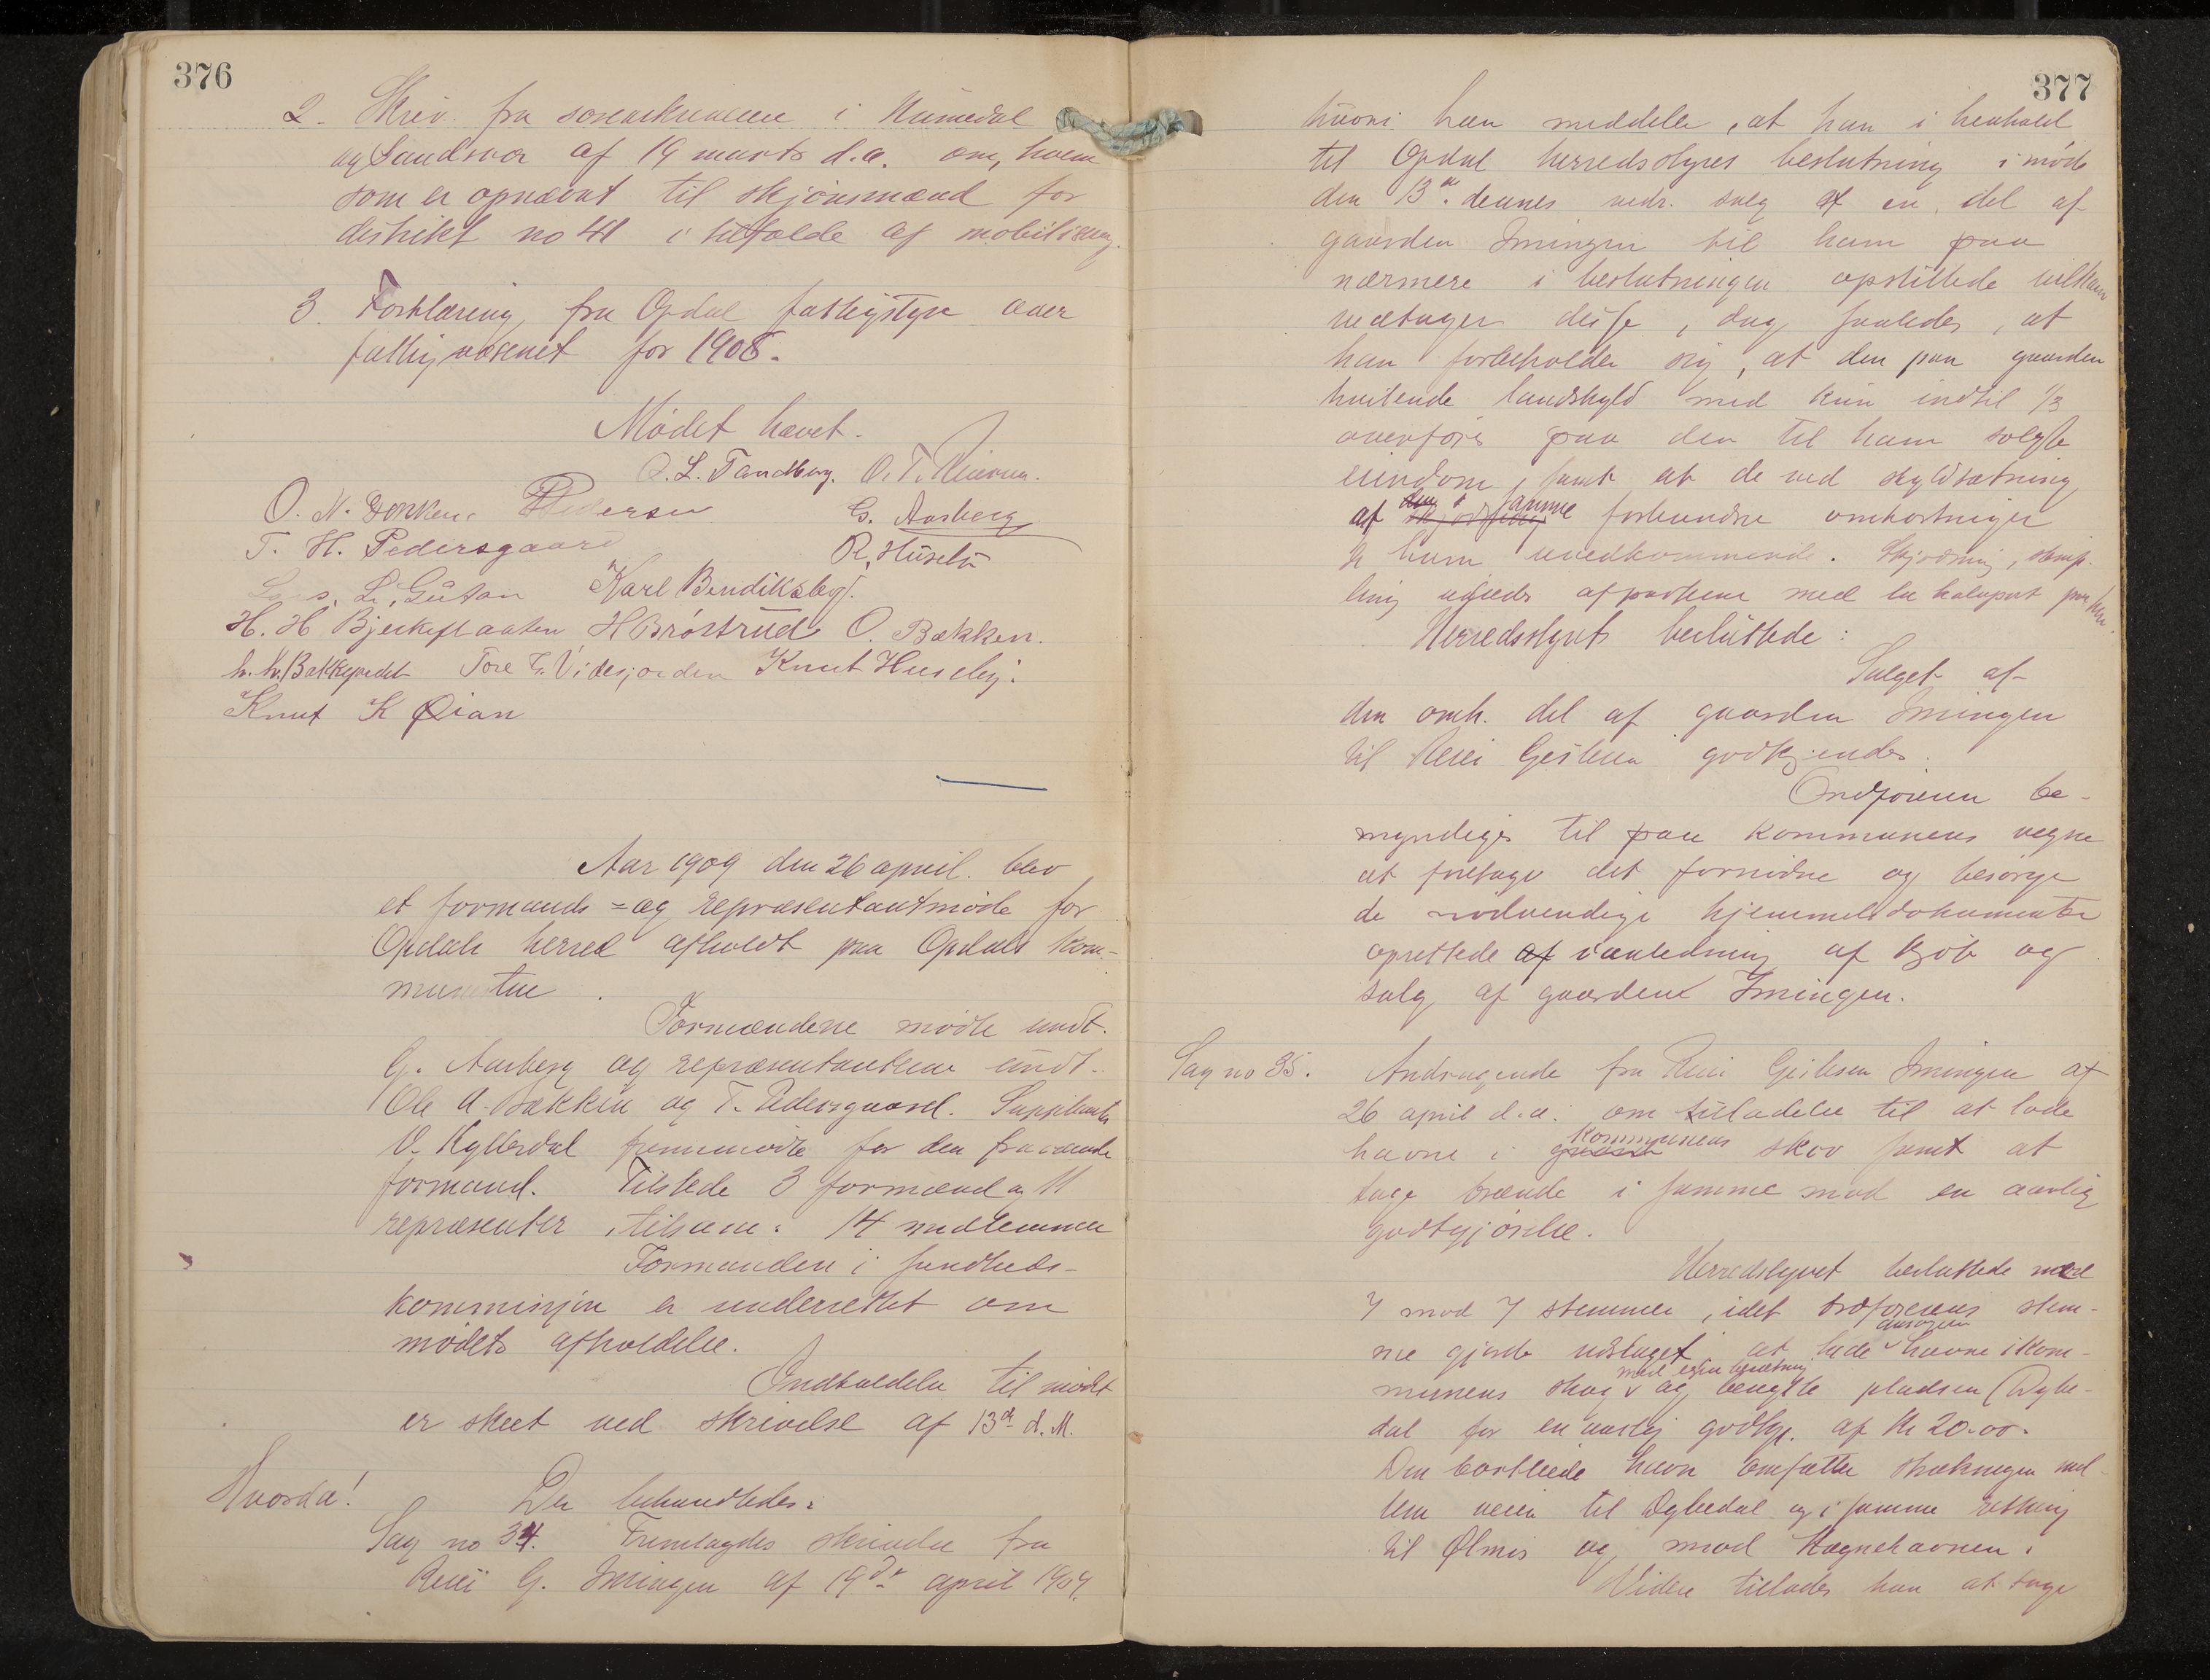 376
2. Skriv. fra sorenskriveren i Numedal
og Sandsvær af 19 marts d.a. om, hvem
som er opnævnt til skjønsmænd for
distrikt no 41 i tilfælde af mobilisering.
3. Forklaring fra Opdal fattigstyre over
fattigvæsenet for 1908.
Mødet hævet.
L. Tandberg. O. T.
O. N. Pedersen G. Aasberg
T. H. Pedersgaard R. Huseby
L. Karl Bendiksby.
H. H Bjerkeflaaten H Brøstrud O. Bækken.
Tore Knut Huseby.
Knut K Øian
Aar 1909 den 26 april. blev
et formands = og repræsentantmøde for
Opdals herred afholdt paa Opdals kom-
munstue.
Formændene mødte undt.
G. Aasberg og repræsentanterne undt.
Ole A. Bækken og T. Pedersgaard. Suppleanten
O. Kyllesdal fremmødte for den fraværende
formand. Tilstede 3 formænd og 11
repræsenter, tilsam: 14 medlemmer
Formanden i sundheds-
kommissjon er underrettet om
mødets afholdelse.
Indkaldelse til mødet
er skeet ved skrivelse af 13de d. M.
Hvorda! Der behandledes:
Sag no 34. Fremlagdes skrivelse fra
G. Imingen af 19de april 1909,
377
hvori han meddeler, at han i henhold
til Opdal herredsstyres beslutning i møde
den 13de dennes vedr. salg af en del af
gaarden Imingen til ham paa
nærmere i beslutningen opstillede vilkaar
vedtager disse, dog saaledes, at
han forbeholder sig, at den paa gaarden
hvilende landskyld med kun indtil 1/3
overføres paa den til ham solgte
eiendom, samt at de ved skyldsætning
af samme forbundne omkostninger
er ham uvedkommend. Skjødning, stemp-
ling udreds af parterne med en halvpart paa hver.
Herredsstyret besluttede:
Salget af
den omh. del af gaarden Imingen
til Geilesen godkjendes.
Ordføreren be-
myndiges til paa kommunens vegne
at foretage det fornødne og besørge
de nødvendige hjemmelsdokumenter
oprettede af i anledning af kjøb og
salg af gaarden Imingen.
Sag no 35. Andragende fra Geilesen Imingen af
26 april d.a. om tilladelse til at lade
havne i kommunens skov samt at
tage brænde i samme mod en aarlig
godtgjørelse.
Herredstyret besluttede med
7 mod 7 stemmer, idet ordførerens stem-
me gjorde udslaget, at lade havne i kom-
munens skog med egen besætning og benytte pladsen (Dybe-
dal for en aarlig godtgj. af Kr 20.00.
Den bortleiede havn omfatter strækningen mel-
lem veien til Dybedal og i samme retning
til Ølmis og mod Hægnehavnen.
Videre tillades han at tage